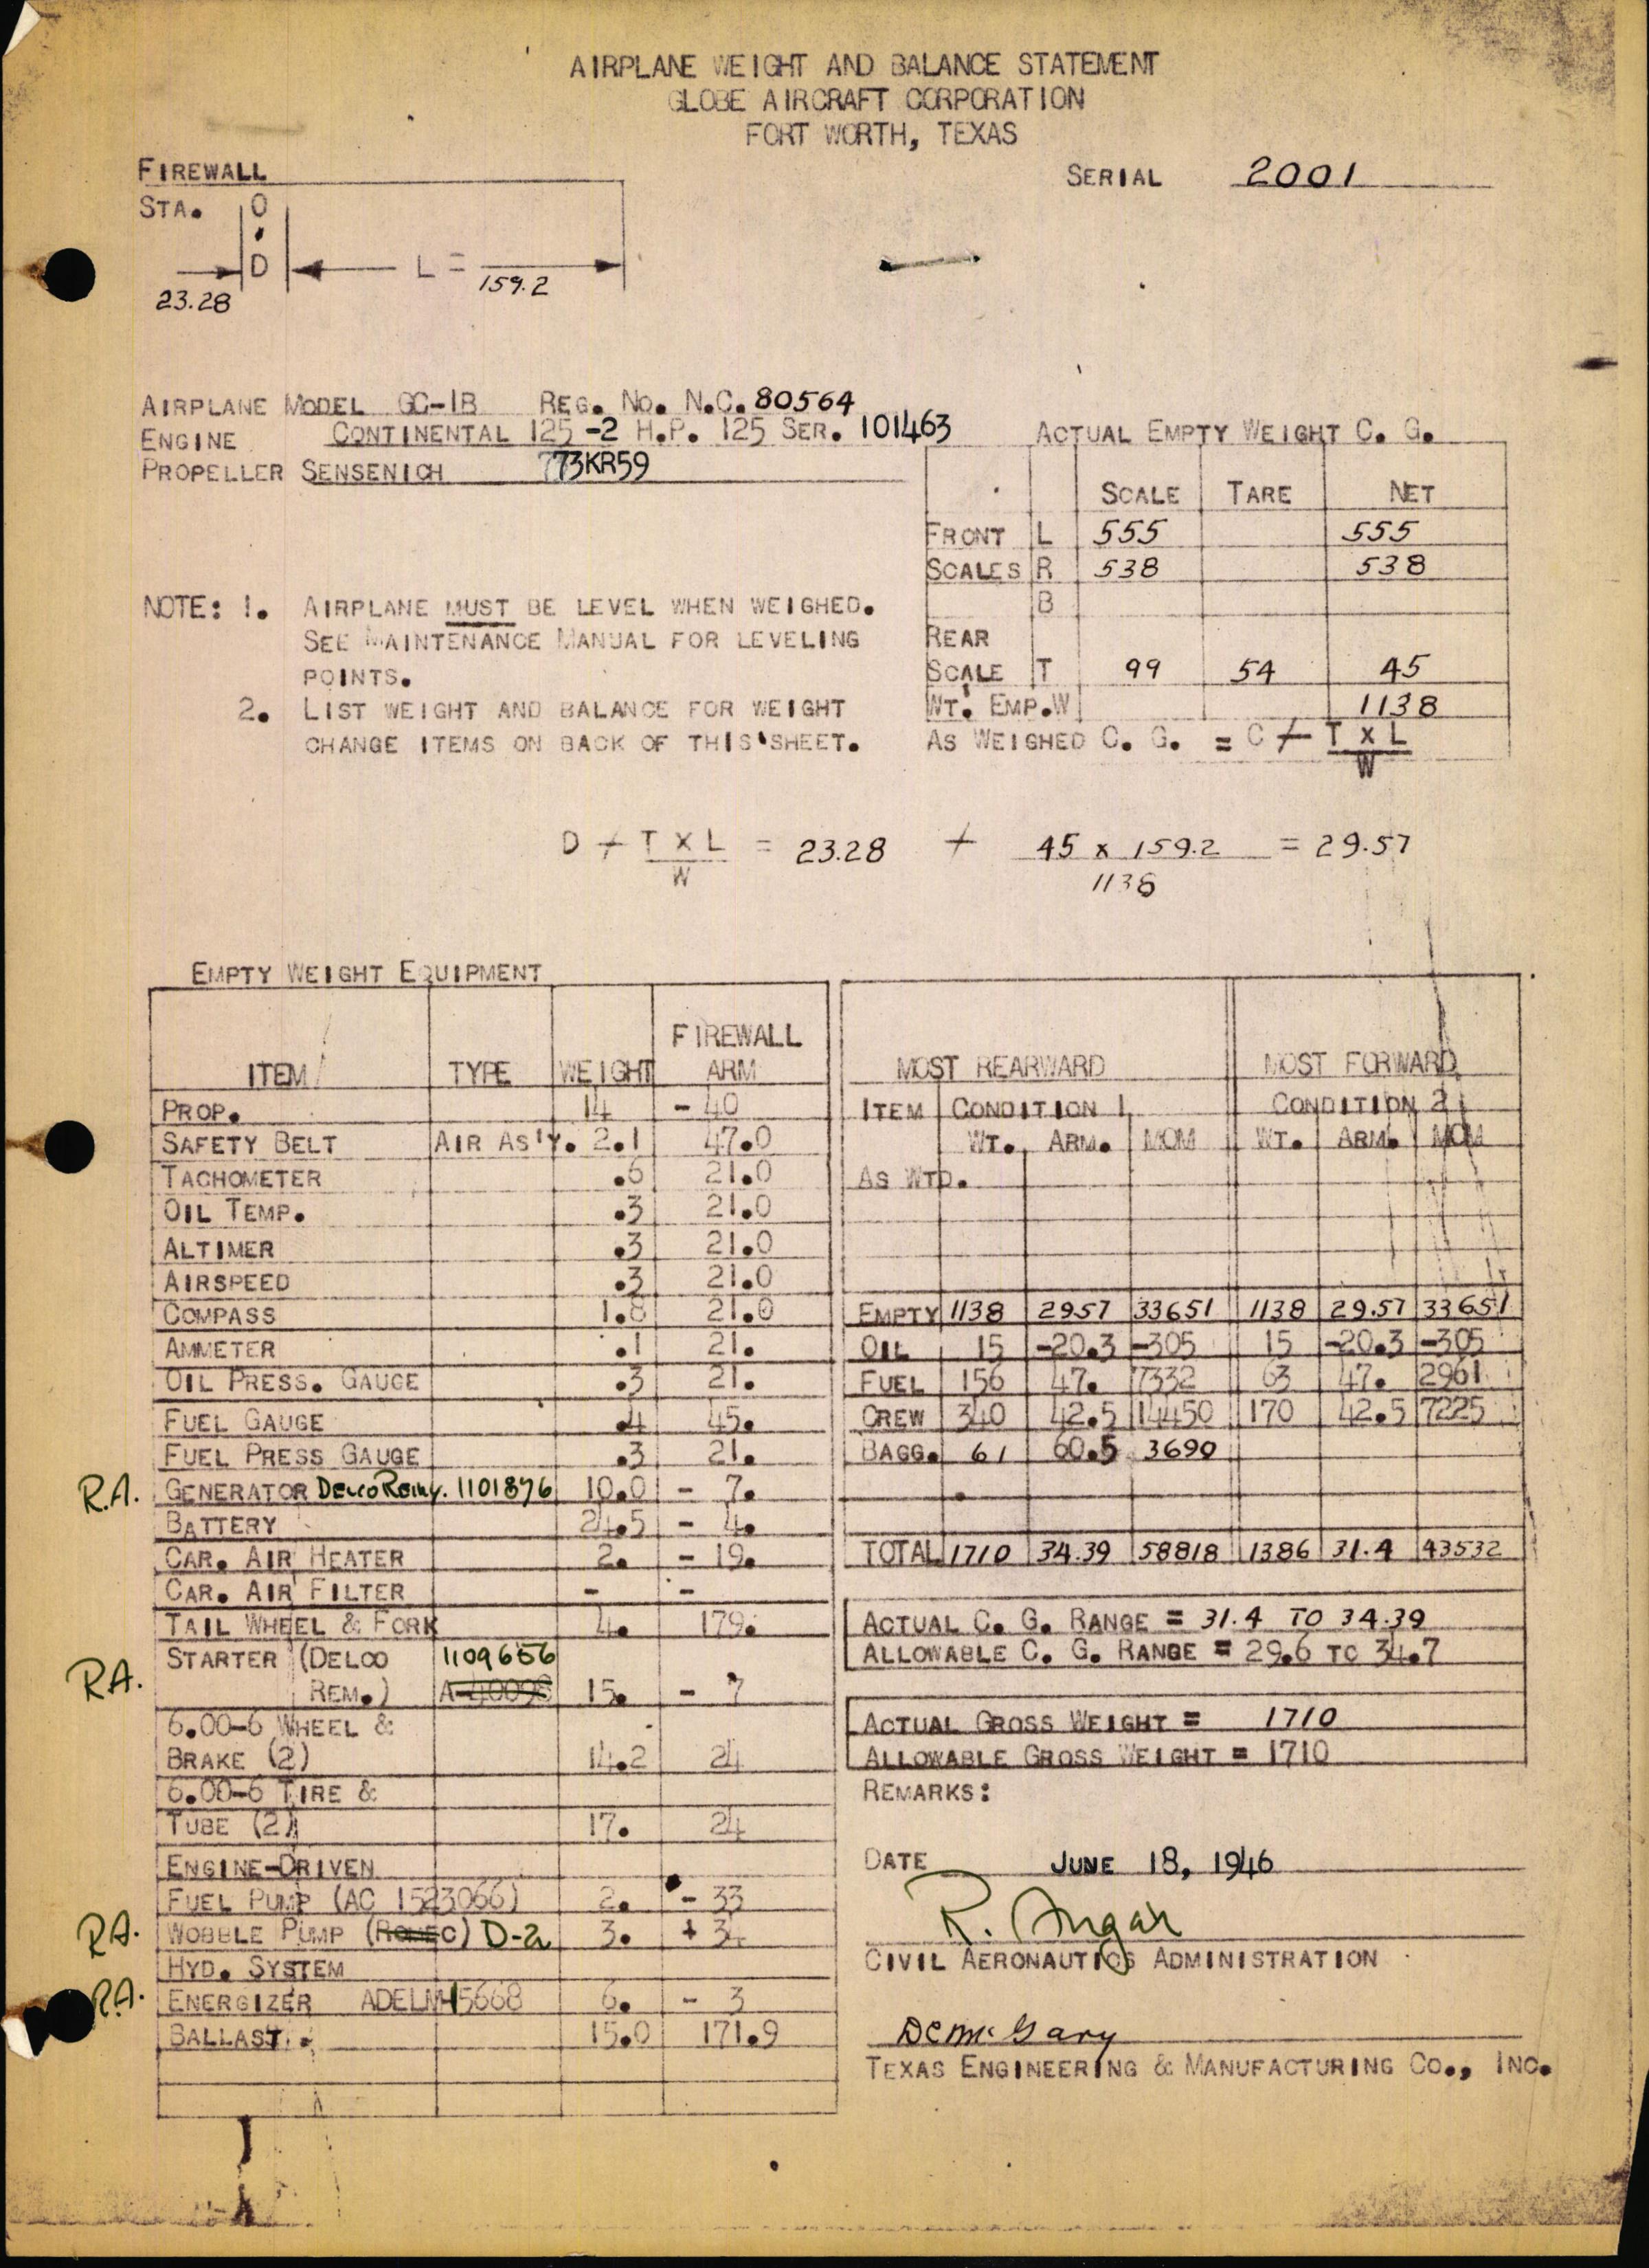 AIRPLANE WEIGHT AND BALANCE STATEMENT
GLOBE AIRCRAFT CORPORATION
FORT WORTH, TEXAS
FIREWALL
SERIAL 2001
STA. 0
D L = 159.2
23.28
AIRPLANE MODEL GC-1B REG. NO. N.C. 80564
ENGINE CONTINENTAL 125-2 H.P. 125 SER. 101463
PROPELLER SENSENICH 773KR59
ACTUAL EMPTY WEIGHT C. G.
SCALE TARE NET
FRONT L 555 555
SCALES R 538 538
B
REAR
SCALE T 99 54 45
WT. EMP.W 1138
AS WEIGHED C. G. = C + T X L
W
NOTE: 1. AIRPLANE MUST BE LEVEL WHEN WEIGHED.
SEE MAINTENANCE MANUAL FOR LEVELING
POINTS.
2. LIST WEIGHT AND BALANCE FOR WEIGHT
CHANGE ITEMS ON BACK OF THIS SHEET.
D + T X L = 23.28 + 45 x 159.2 = 29.57
W 1138
EMPTY WEIGHT EQUIPMENT
ITEM TYPE WEIGHT FIREWALL ARM
PROP. 14 - 40
SAFETY BELT AIR AS'Y. 2.1 47.0
TACHOMETER .6 21.0
OIL TEMP. .3 21.0
ALTIMER .3 21.0
AIRSPEED .3 21.0
COMPASS 1.8 21.0
AMMETER .1 21.
OIL PRESS. GAUGE .3 21.
FUEL GAUGE .4 45.
FUEL PRESS GAUGE .3 21.
R.A. GENERATOR Delco Remy. 1101876 10.0 - 7.
BATTERY 24.5 - 4.
CAR. AIR HEATER 2. - 19.
CAR. AIR FILTER - -
TAIL WHEEL & FORK 4. 179.
STARTER (DELCO 1109656
R.A. REM.) 15. - 7
6.00-6 WHEEL &
BRAKE (2) 14.2 24
6.00-6 TIRE &
TUBE (2) 17. 24
ENGINE-DRIVEN
FUEL PUMP (AC 1523066) 2. - 33
R.A. WOBBLE PUMP (ROMEC) D-2 3. + 3.
HYD. SYSTEM
R.A. ENERGIZER ADEL 15668 6. - 3
BALLAST. 15.0 171.9
MOST REARWARD MOST FORWARD
ITEM CONDITION 1 CONDITION 2
WT. ARM. MOM WT. ARM. MOM
AS WTD.
EMPTY 1138 2957 33651 1138 29.57 33651
OIL 15 -20.3 -305 15 -20.3 -305
FUEL 156 47. 7332 63 47. 2961
CREW 340 42.5 14450 170 42.5 7225
BAGG. 61 60.5 3690
TOTAL 1710 34.39 58818 1386 31.4 43532
ACTUAL C. G. RANGE = 31.4 TO 34.39
ALLOWABLE C. G. RANGE = 29.6 TO 34.7
ACTUAL GROSS WEIGHT = 1710
ALLOWABLE GROSS WEIGHT = 1710
REMARKS:
DATE JUNE 18, 1946
R. Angar
CIVIL AERONAUTICS ADMINISTRATION
DC McGary
TEXAS ENGINEERING & MANUFACTURING CO., INC.